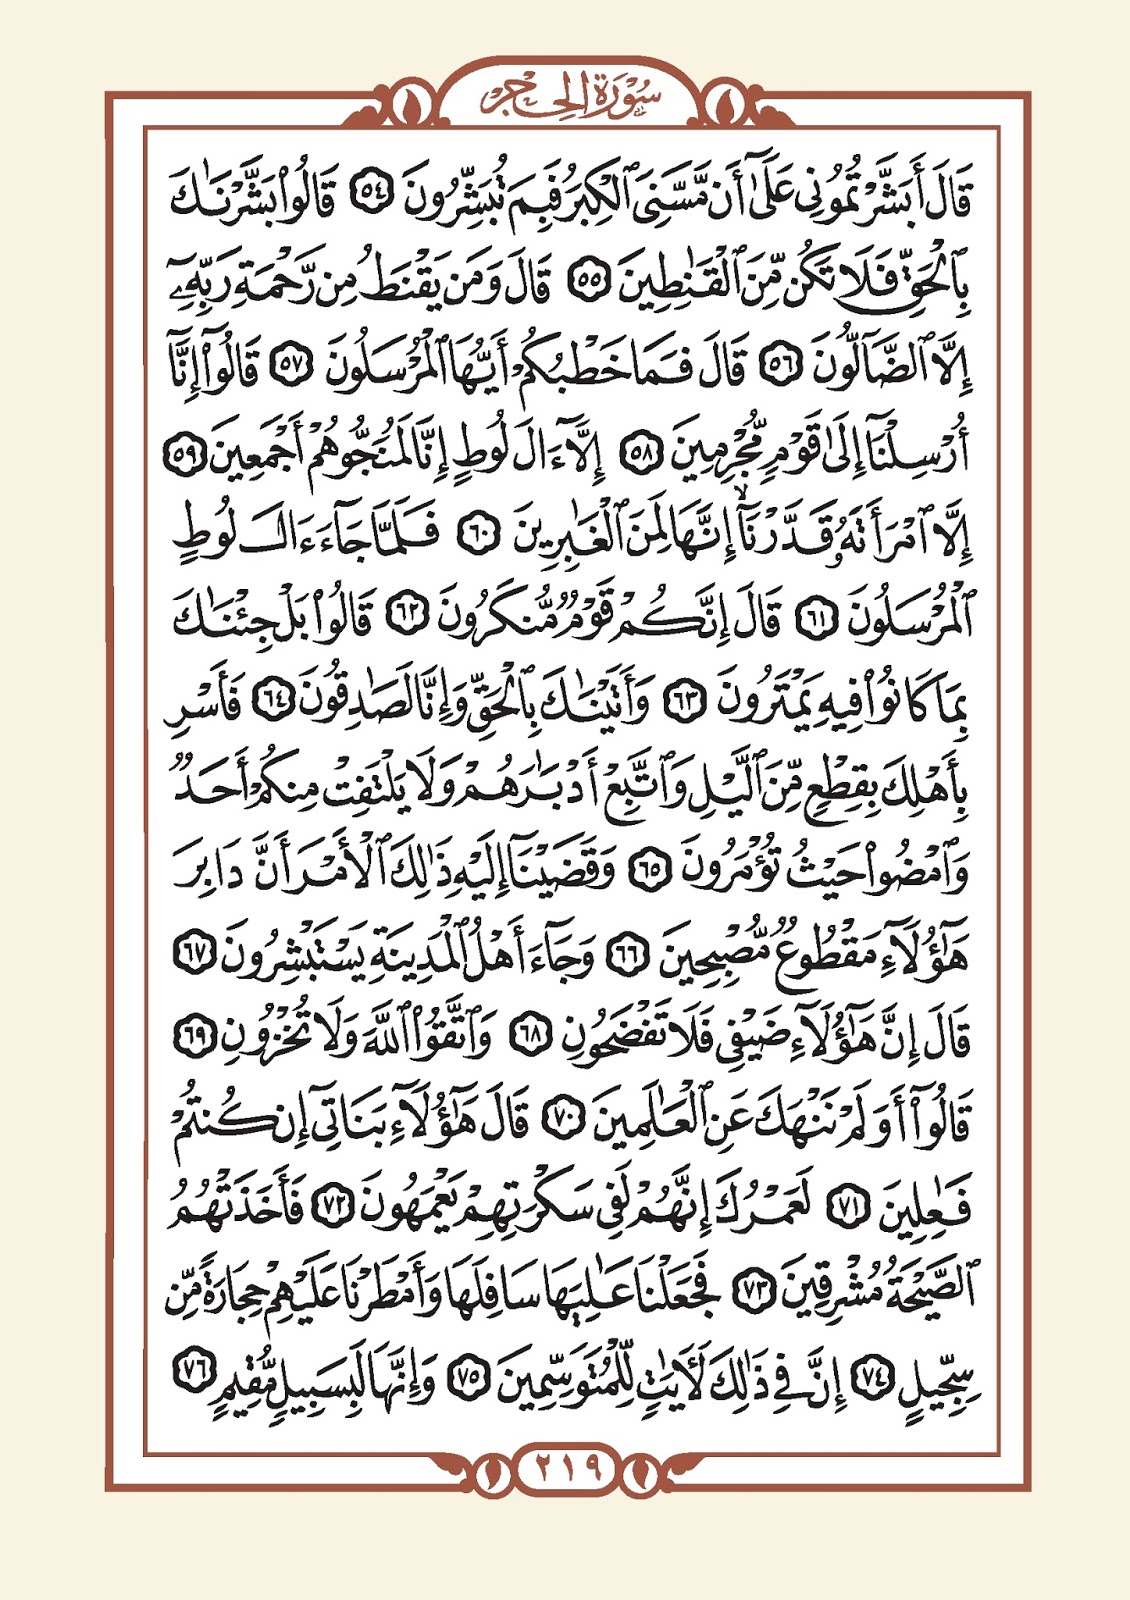 سُورَةُ الحِجْرِ
قَالَ أَبَشَّرْتُمُونِى عَلَىٰٓ أَن مَّسَّنِىَ ٱلْكِبَرُ فَبِمَ تُبَشِّرُونَ ٥٤ قَالُوا۟ بَشَّرْنَـٰكَ
بِٱلْحَقِّ فَلَا تَكُن مِّنَ ٱلْقَـٰنِطِينَ ٥٥ قَالَ وَمَن يَقْنَطُ مِن رَّحْمَةِ رَبِّهِۦٓ
إِلَّا ٱلضَّآلُّونَ ٥٦ قَالَ فَمَا خَطْبُكُمْ أَيُّهَا ٱلْمُرْسَلُونَ ٥٧ قَالُوٓا۟ إِنَّآ
أُرْسِلْنَآ إِلَىٰ قَوْمٍ مُّجْرِمِينَ ٥٨ إِلَّآ ءَالَ لُوطٍ إِنَّا لَمُنَجُّوهُمْ أَجْمَعِينَ ٥٩
إِلَّا ٱمْرَأَتَهُۥ قَدَّرْنَآ ۙ إِنَّهَا لَمِنَ ٱلْغَـٰبِرِينَ ٦٠ فَلَمَّا جَآءَ ءَالَ لُوطٍ
ٱلْمُرْسَلُونَ ٦١ قَالَ إِنَّكُمْ قَوْمٌ مُّنكَرُونَ ٦٢ قَالُوا۟ بَلْ جِئْنَـٰكَ
بِمَا كَانُوا۟ فِيهِ يَمْتَرُونَ ٦٣ وَأَتَيْنَـٰكَ بِٱلْحَقِّ وَإِنَّا لَصَـٰدِقُونَ ٦٤ فَأَسْرِ
بِأَهْلِكَ بِقِطْعٍ مِّنَ ٱلَّيْلِ وَٱتَّبِعْ أَدْبَـٰرَهُمْ وَلَا يَلْتَفِتْ مِنكُمْ أَحَدٌ
وَٱمْضُوا۟ حَيْثُ تُؤْمَرُونَ ٦٥ وَقَضَيْنَآ إِلَيْهِ ذَٰلِكَ ٱلْأَمْرَ أَنَّ دَابِرَ
هَـٰٓؤُلَآءِ مَقْطُوعٌ مُّصْبِحِينَ ٦٦ وَجَآءَ أَهْلُ ٱلْمَدِينَةِ يَسْتَبْشِرُونَ ٦٧
قَالَ إِنَّ هَـٰٓؤُلَآءِ ضَيْفِى فَلَا تَفْضَحُونِ ٦٨ وَٱتَّقُوا۟ ٱللَّهَ وَلَا تُخْزُونِ ٦٩
قَالُوٓا۟ أَوَلَمْ نَنْهَكَ عَنِ ٱلْعَـٰلَمِينَ ٧٠ قَالَ هَـٰٓؤُلَآءِ بَنَاتِىٓ إِن كُنتُمْ
فَـٰعِلِينَ ٧١ لَعَمْرُكَ إِنَّهُمْ لَفِى سَكْرَتِهِمْ يَعْمَهُونَ ٧٢ فَأَخَذَتْهُمُ
ٱلصَّيْحَةُ مُشْرِقِينَ ٧٣ فَجَعَلْنَا عَـٰلِيَهَا سَافِلَهَا وَأَمْطَرْنَا عَلَيْهِمْ حِجَارَةً مِّن
سِجِّيلٍ ٧٤ إِنَّ فِى ذَٰلِكَ لَـَٔايَـٰتٍ لِّلْمُتَوَسِّمِينَ ٧٥ وَإِنَّهَا لَبِسَبِيلٍ مُّقِيمٍ ٧٦
٢١٩